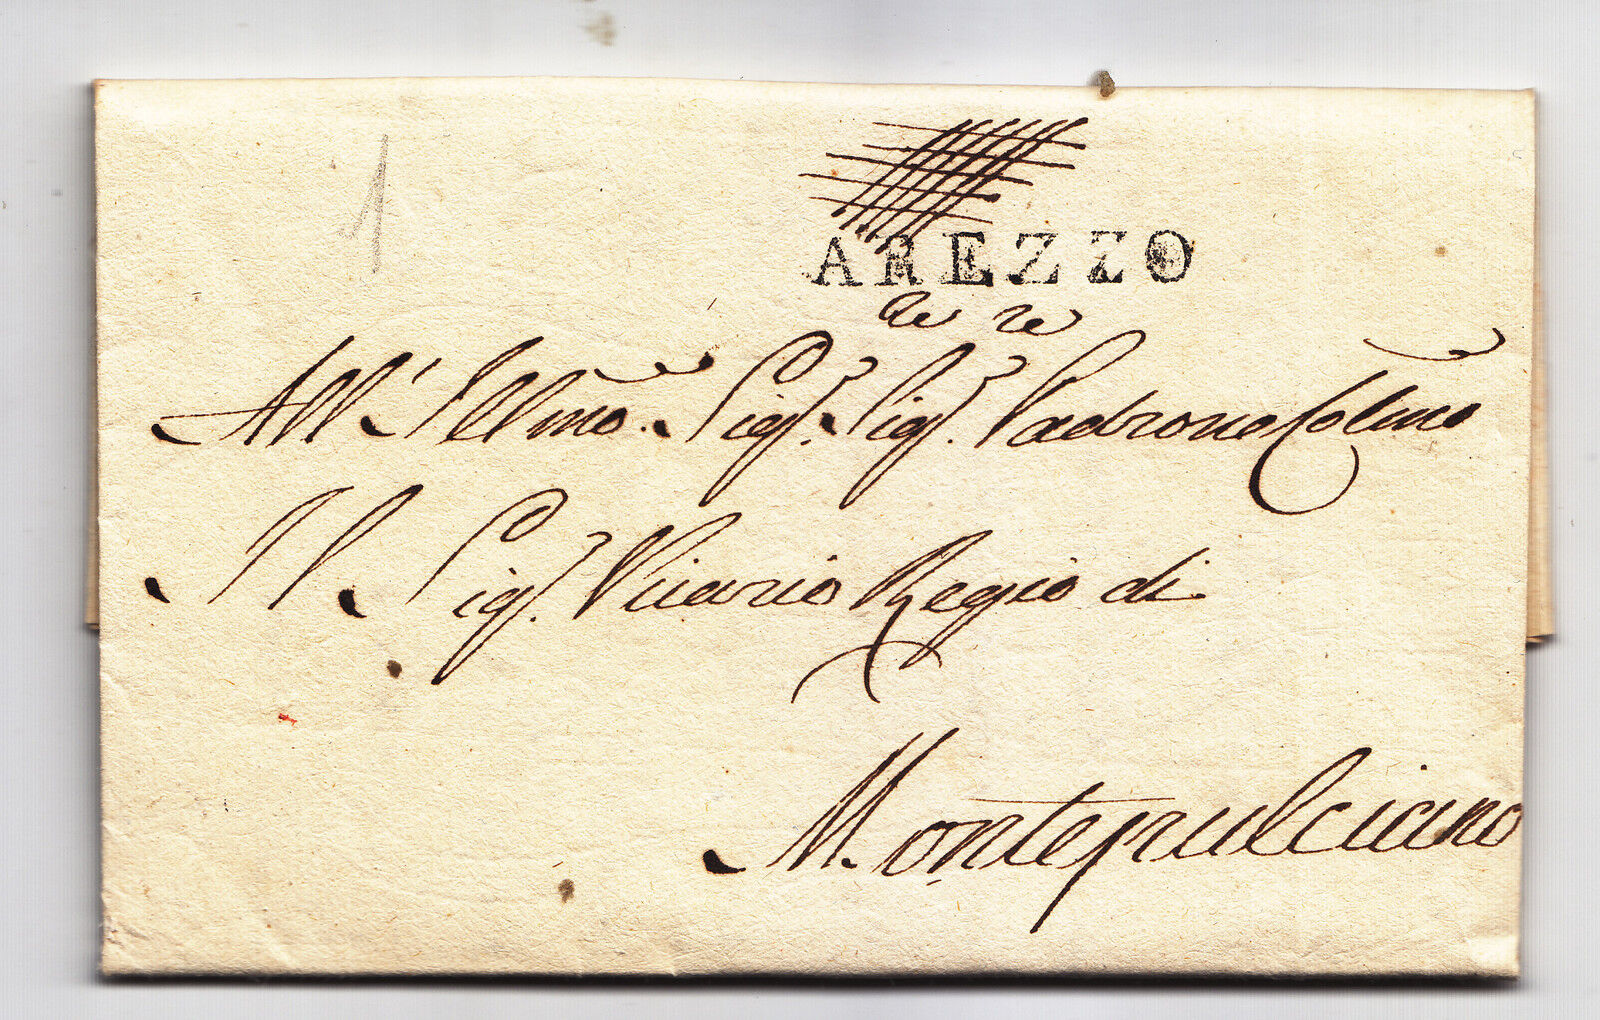 1
AREZZO
All' Illmo. Sigr. Sigr. Padrone Colmo
Il Sigr. Vicario Regio di
Montepulciano